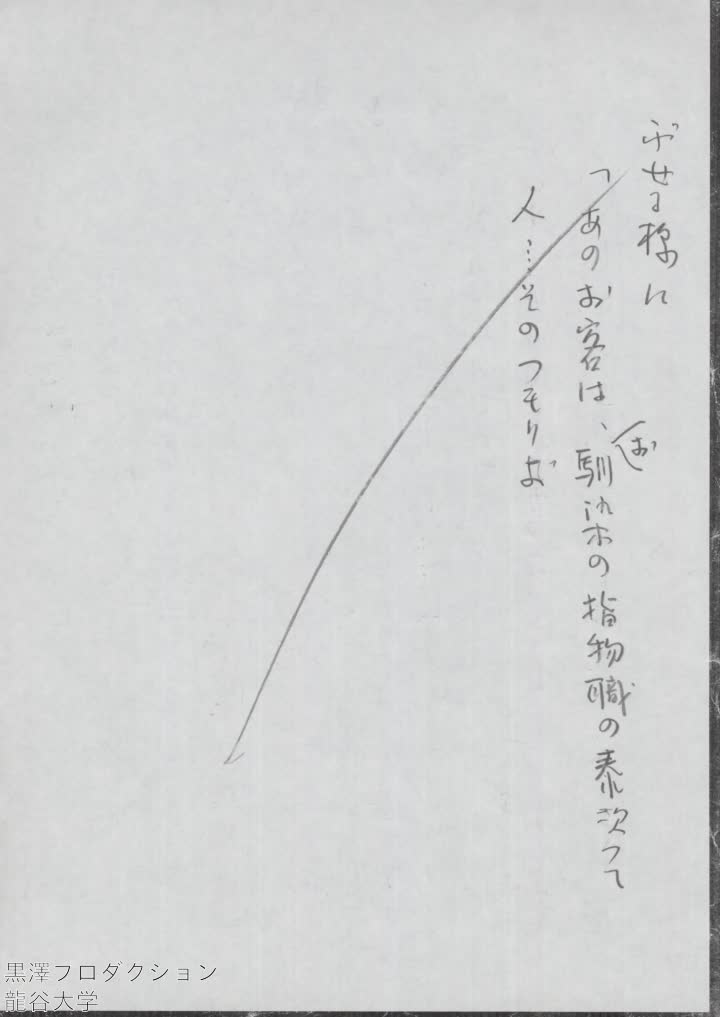 ぶせる様に
「あのお客は、(お)馴染の指物職の泰次って
人…そのつもりで
黒澤プロダクション
龍谷大学